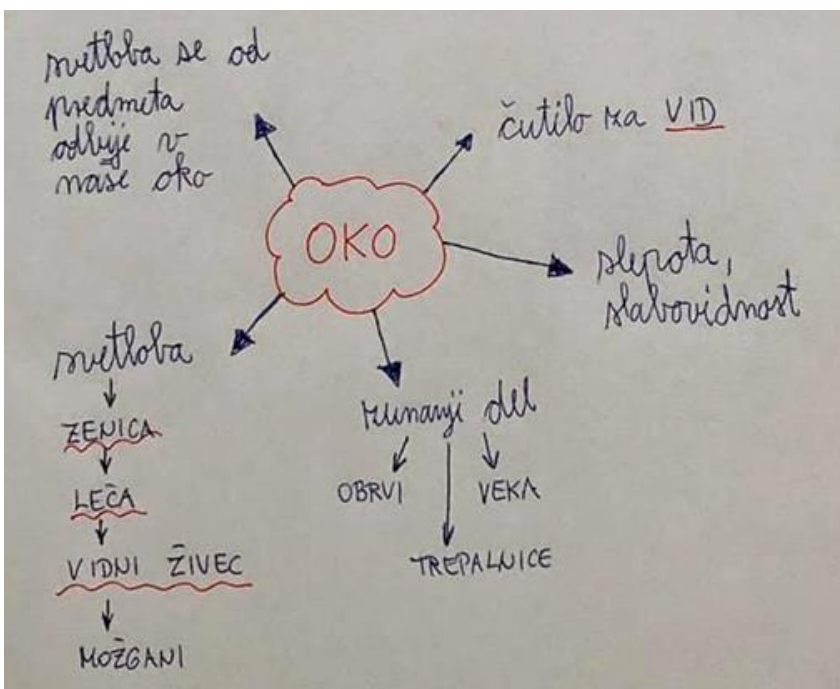 svetloba se od
predmeta
odbije v
naše oko
čutilo za VID
OKO
slepota,
slabovidnost
svetloba
ZENICA
LEČA
VIDNI ŽIVEC
MOŽGANI
zunanji del
OBRVI
VEKA
TREPALNICE